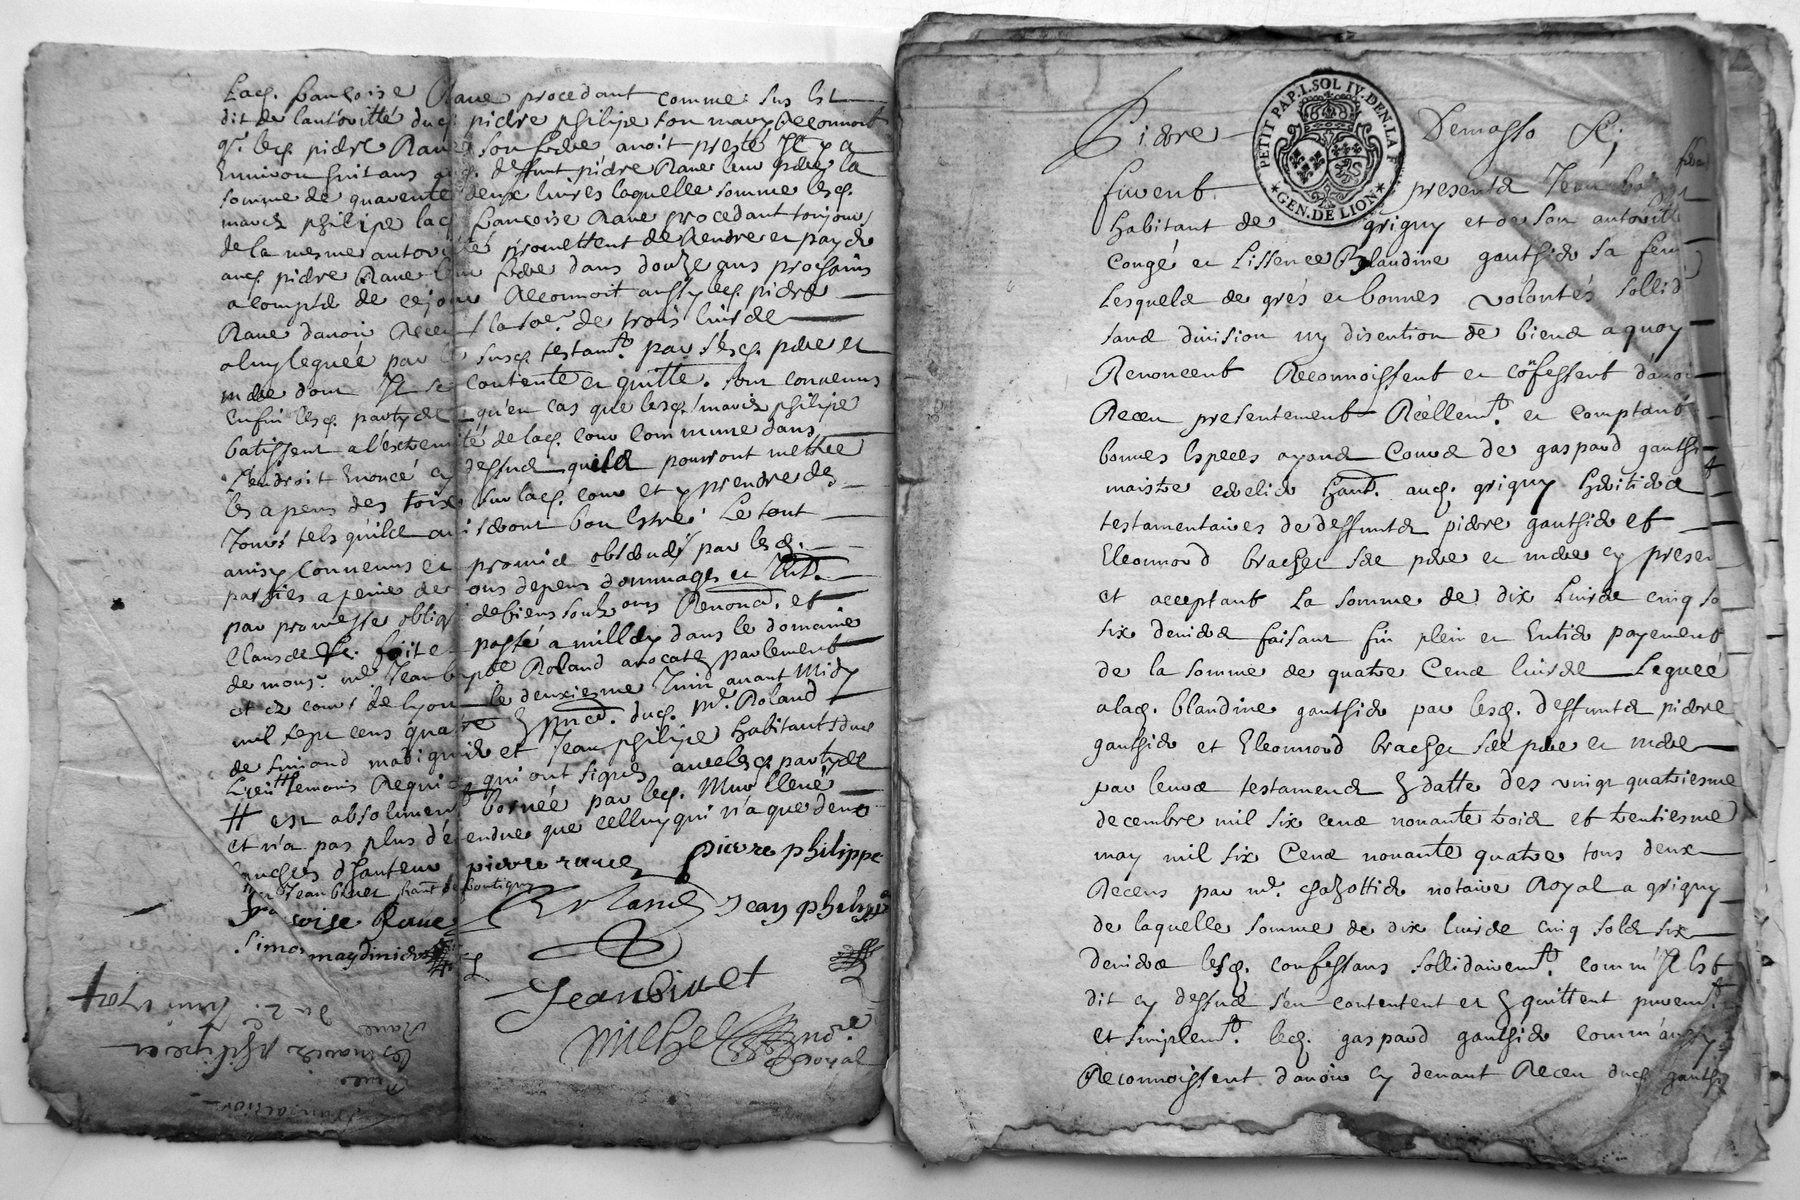 Lad. françoise Rave procedant comme sus est
dit de lautorité dud. pierre philipe son mary Reconnoit
q. led. pierre Rave son frere avoit presté Il y a
Environ huit ans deffunt pierre Rave leur pere la
somme de quarente deux livres laquelle somme lesd.
mariez philipe lad. françoise Rave procedant toujours
de la mesme autorité promettent de Rendre et payer
aud. pierre Rave leur frere dans douze ans prochains
a compter de cejour Reconnoit aussy led. pierre
Rave davoir Receu la so.e de trois livres
a luy leguée par susd. testam.t par sesd. pere et
mere dont Il se contente et quitte. sont convenus
Enfin lesd. partyes qu'en cas que lesd. mariez philipe
batissent a l'extremité de lad. cour commune dans
l'endroit Enoncé cy dessus quils pourront mettre
les apens des toix sur lad. cour et y prendre des
Jours tels quils aviseront bon Estre. Le tout
ainsy convenus et promis observer par lesd.
parties a peine de tous depens dommages et Int.
par promesse oblig. de biens soubz Renonc. et
Clauses fait et passé a millery dans le domaine
de mons.r m.e Jean bapte Roland avocat parlement
et ez cours de lyon le deuxiesme Juin avant Midy
mil sept cens quatre En pnce. dud. m.e Roland
de et Jean philipe habitant
temoins Requis qui ont signés avec lesd. partyes
# est absolument bornée par led. Mur
et n'a pas plus d'étendue que celluy qui n'a que deux
d'hauteur pierre rave pierre philippe
Jean bivet
françoise Rave Roland Jean philipe
Simon
Jean bivet
michel no.re
Royal
Du 2.e Juin 1704
Rave
les mariez philipe et
Rave
transaction
PETIT PAP. I. SOL IV. DEN. LA F
GEN. DE LION
Pierre Demasso
furent presents Jean
habitant de grigny et de son autorité
congé et Lissence Blandine gauthier sa femme
Lesquels de grés et bonnes volontés sollid
sans division ny discution de biens a quoy
Renoncent Reconnoissent et cõfessent davoir
Receu presentement Réellem.t et comptant
bonnes Especes ayans Cours de gaspard gauthier
maistre hant. aud. grigny heritier
testamentaires de deffunts pierre gauthier et
Eleonnord bracher ses pere et mere cy present
et acceptant La somme de dix Livres cinq so
six deniers faisant fin plein et Entier payement
de la somme de quatre Cens livres Leguée
a lad. blandine gauthier par lesd. deffunts pierre
gauthier et Eleonnord bracher ses pere et mere
par leurs testamens En datte des vingt quatriesme
decembre mil six cens nonante trois et trentiesme
may mil six Cens nonante quatre tous deux
Receus par m.e notaire Royal a grigny
de laquelle somme de dix livres cinq sols six
deniers lesd. confessans sollidairem.t comm'Il Est
dit cy dessus s'en contentent et En quittent purem.t
et simplem.t led. gaspard gauthier comm'aussy
Reconnoissent davoir cy devant Receu dud. gauthier